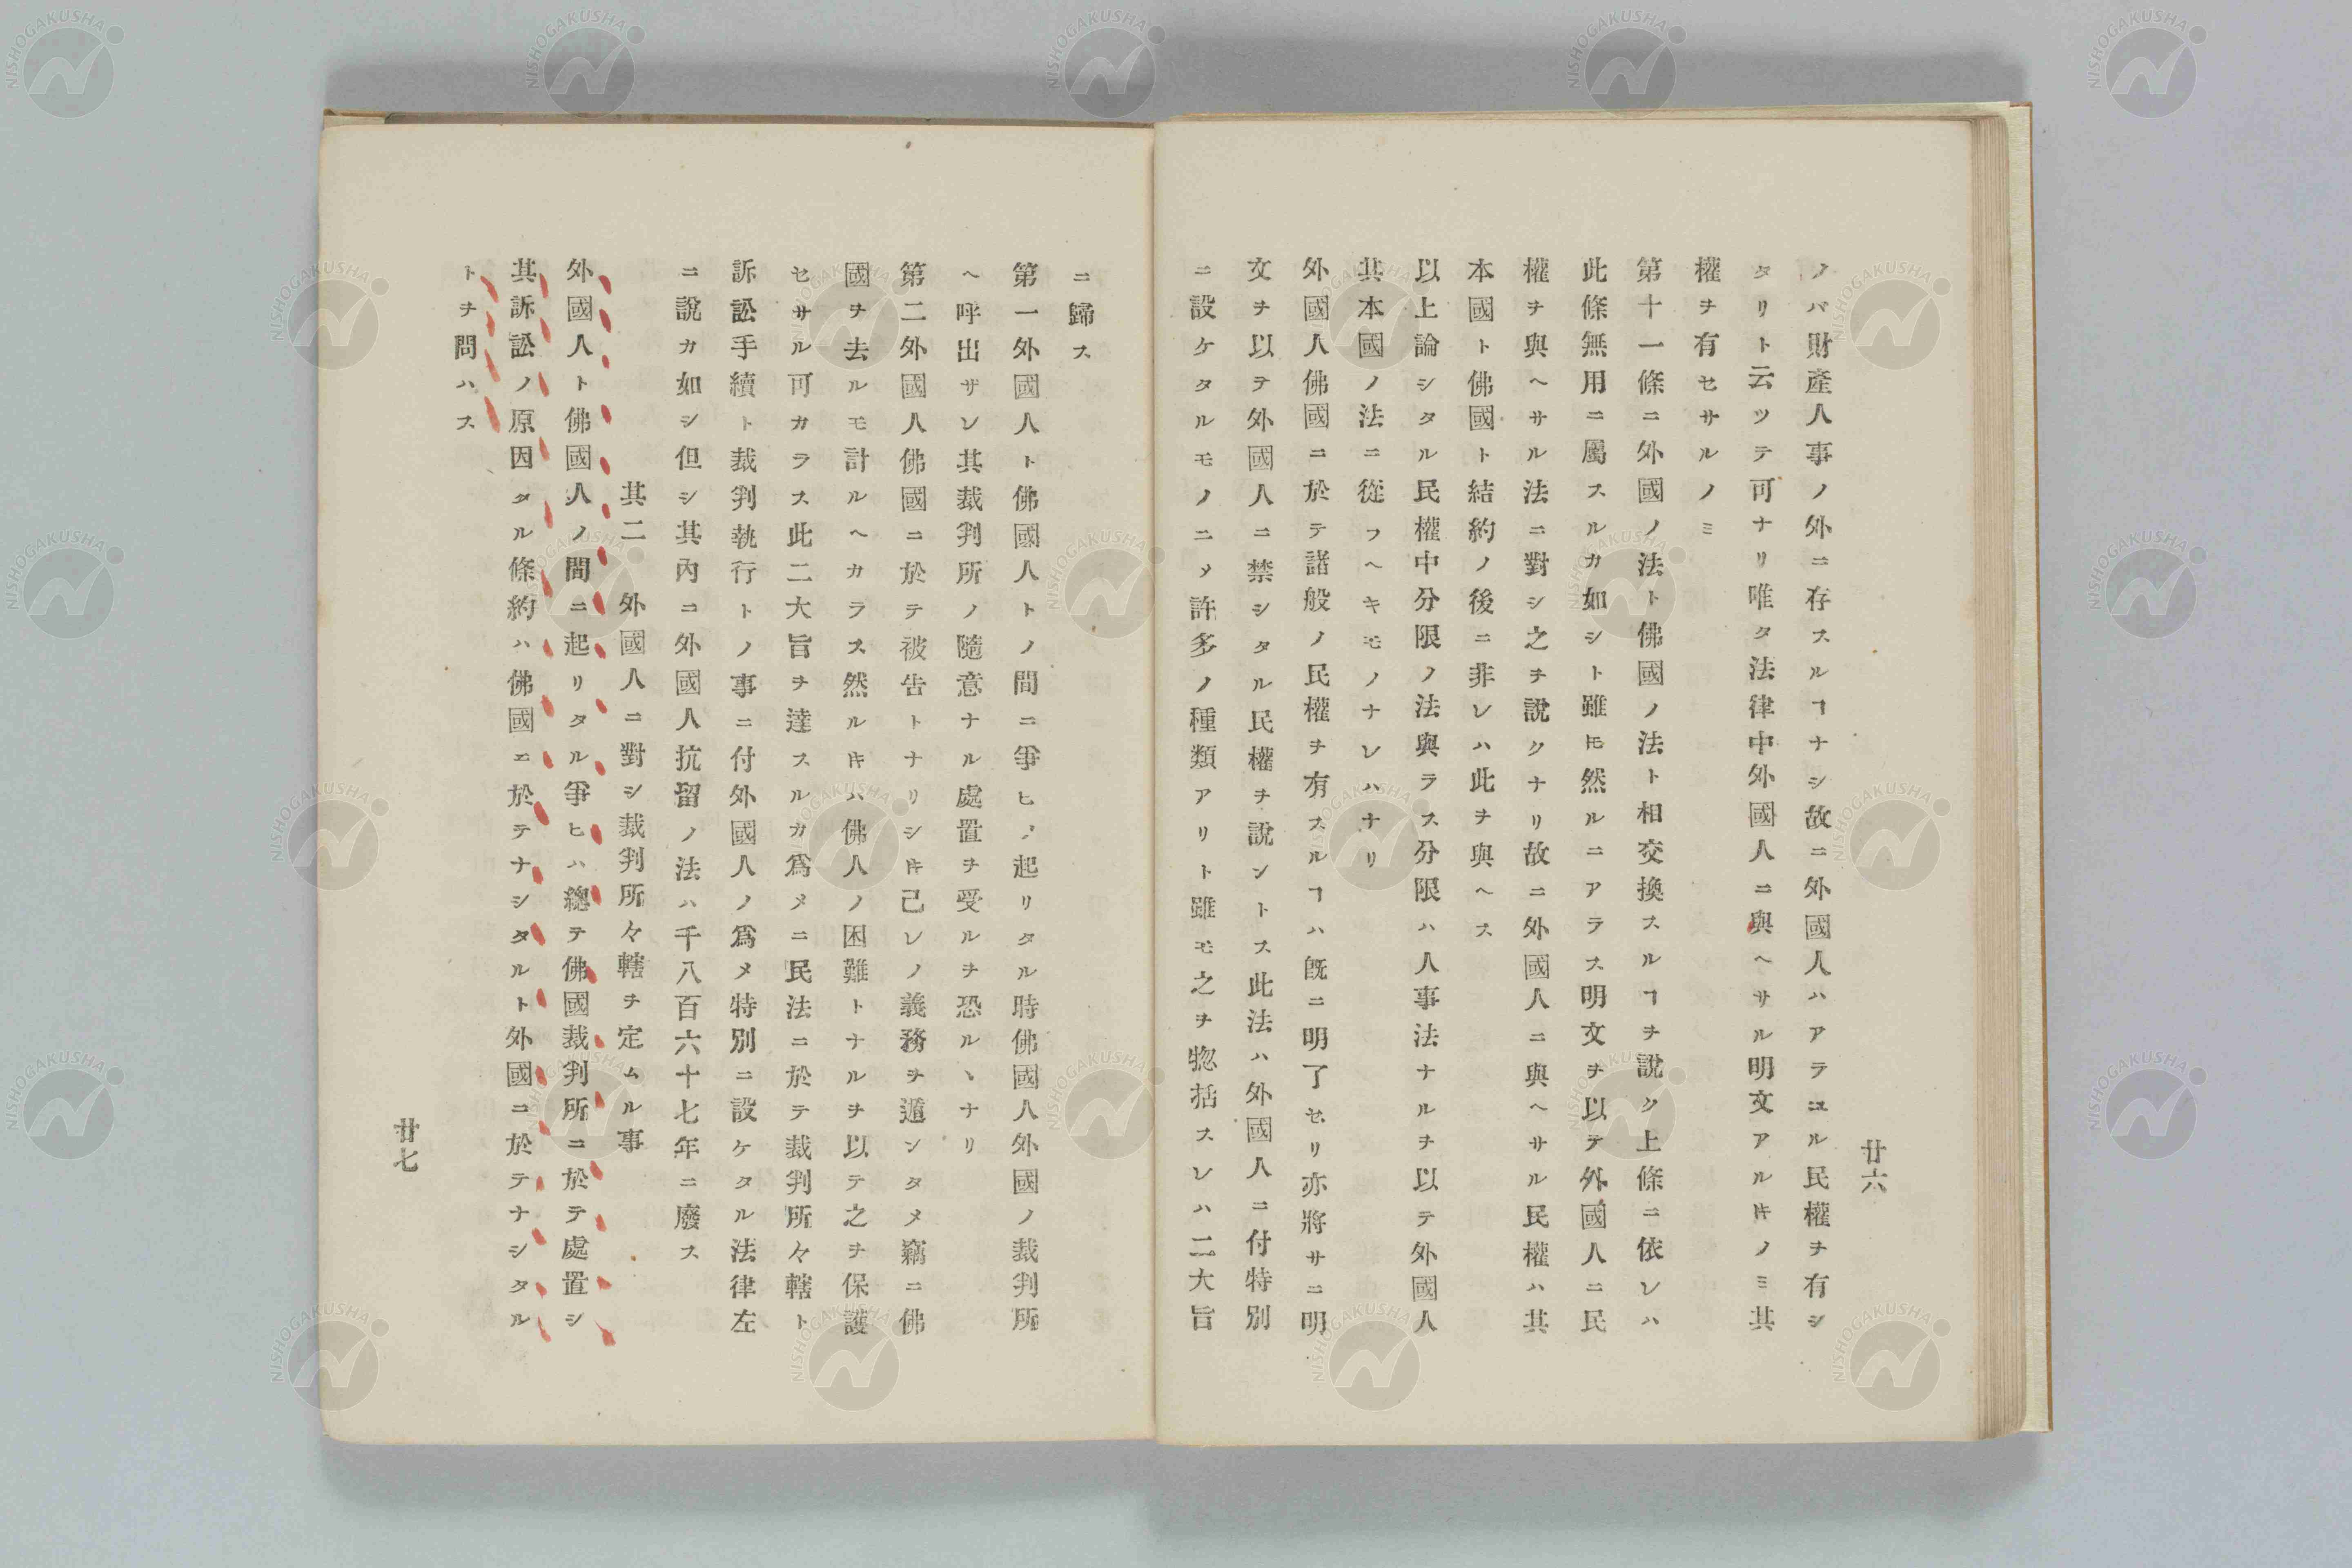 廿六
ノバ財產人事ノ外ニ存スルヿナシ故ニ外國人ハアラユル民權ヲ有シ
タリト云ツテ可ナリ唯タ法律中外國人ニ與ヘサル明文アル𪜈ノミ其
權ヲ有セサルノミ
第十一條ニ外國ノ法ト佛國ノ法ト相交換スルヿヲ說ク上條ニ依レハ
此條無用ニ屬スルカ如シト雖𪜈然ルニアラス明文ヲ以テ外國人ニ民
權ヲ與ヘサル法ニ對シ之ヲ說クナリ故ニ外國人ニ與ヘサル民權ハ其
本國ト佛國ト結約ノ後ニ非レハ此ヲ與ヘス
以上論シタル民權中分限ノ法與ラス分限ハ人事法ナルヲ以テ外國人
其本國ノ法ニ從フヘキモノナレハナリ
外國人佛國ニ於テ諸般ノ民權ヲ有スルヿハ既ニ明了セリ亦將サニ明
文ヲ以テ外國人ニ禁シタル民權ヲ說ントス此法ハ外國人ニ付特別
ニ設ケタルモノニメ許多ノ種類アリト雖モ之ヲ惣括スレハ二大旨
ニ歸ス
第一外國人ト佛國人トノ間ニ爭ヒノ起リタル時佛國人外國ノ裁判所
ヘ呼出サレ其裁判所ノ隨意ナル處置ヲ受ルヲ恐ルヽナリ
第二外國人佛國ニ於テ被吿トナリシ𪜈己レノ義務ヲ遁ンタメ竊ニ佛
國ヲ去ルモ計ルヘカラス然ル𪜈ハ佛人ノ困難トナルヲ以テ之ヲ保護
セサル可カラス此二大旨ヲ達スルカ爲メニ民法ニ於テ裁判所々轄ト
訴訟手續ト裁判執行トノ事ニ付外國人ノ爲メ特別ニ設ケタル法律左
ニ說カ如シ但シ其內コ外國人抗留ノ法ハ千八百六十七年ニ廢ス
其二 外國人ニ對シ裁判所々轄ヲ定ムル事
外國人ト佛國人ノ間ニ起リタル爭ヒハ總テ佛國裁判所ニ於テ處置シ
其訴訟ノ原因タル條約ハ佛國ニ於テナシタルト外國ニ於テナシタル
トヲ問ハス
廿七
NISHOGAKUSHA